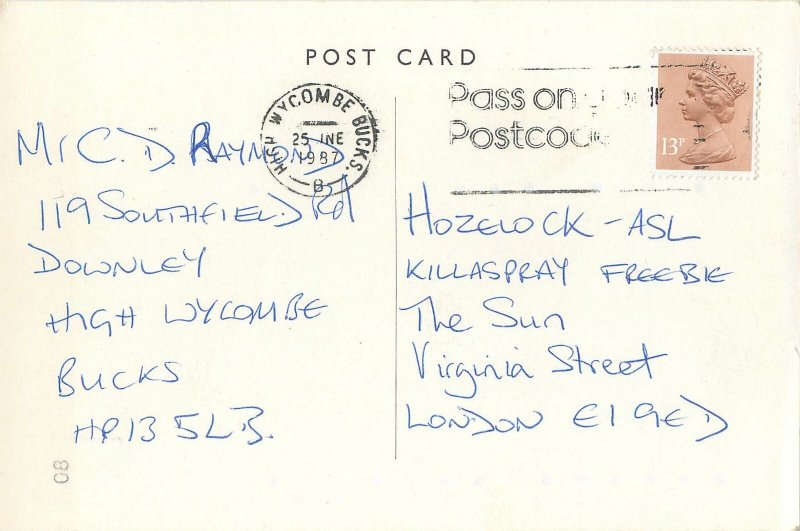 POST CARD
HIGH WYCOMBE BUCKS.
25 JNE
1987
B
Pass on your
Postcode
13P
Mr C. D. RAYMOND
119 SOUTHFIELD Rd
DOWNLEY
HIGH WYCOMBE
BUCKS
HP13 5LB.
HOZELOCK - ASL
KILLASPRAY FREEBIE
The Sun
Virginia Street
LONDON E1 9ED
80